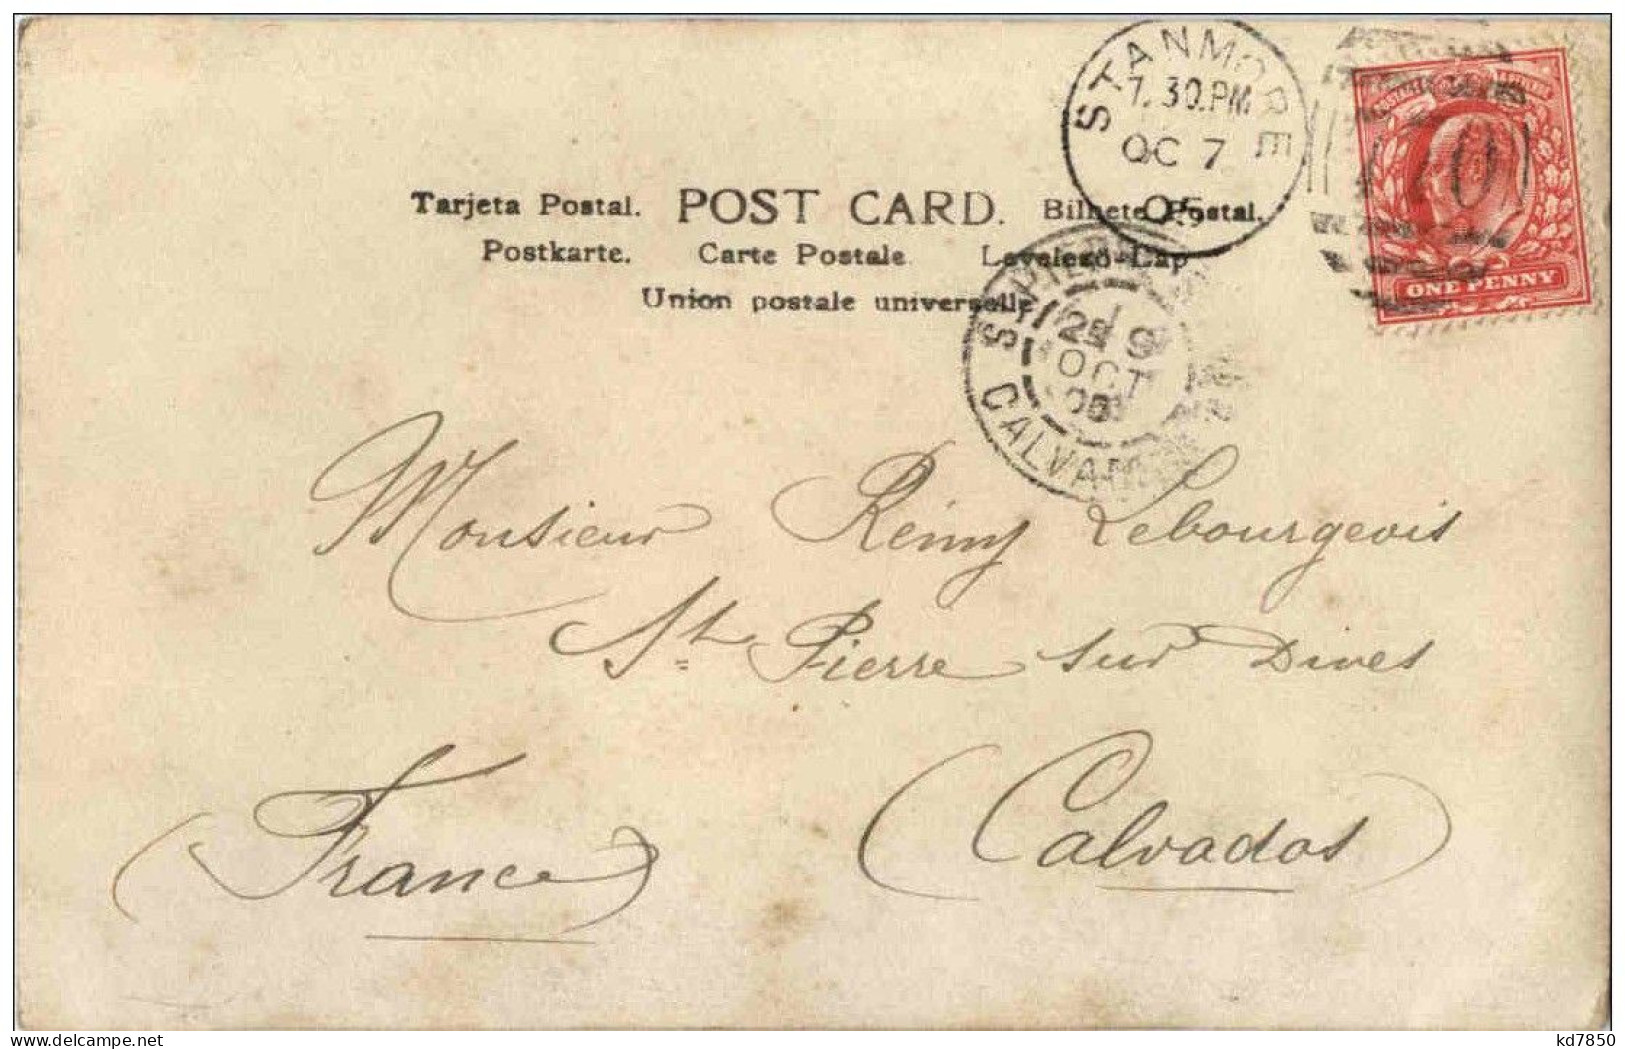 STANMORE
7.30.PM
OC 7
05
710
ONE PENNY
Tarjeta Postal. POST CARD. Bilhete Postal.
Postkarte. Carte Postale Levelező-Lap
Union postale universelle
OCT
CALVADOS
Monsieur Rémy Lebourgeois
St Pierre sur Dives
(France) (Calvados)
kd7850